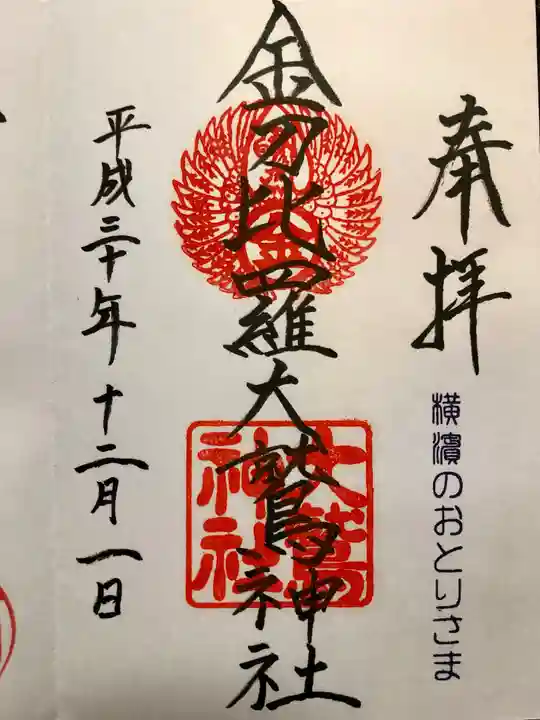 奉拝
横濱のおとりさま
金刀比羅大鷲神社
金
大鷲神社
平成三十年十二月一日